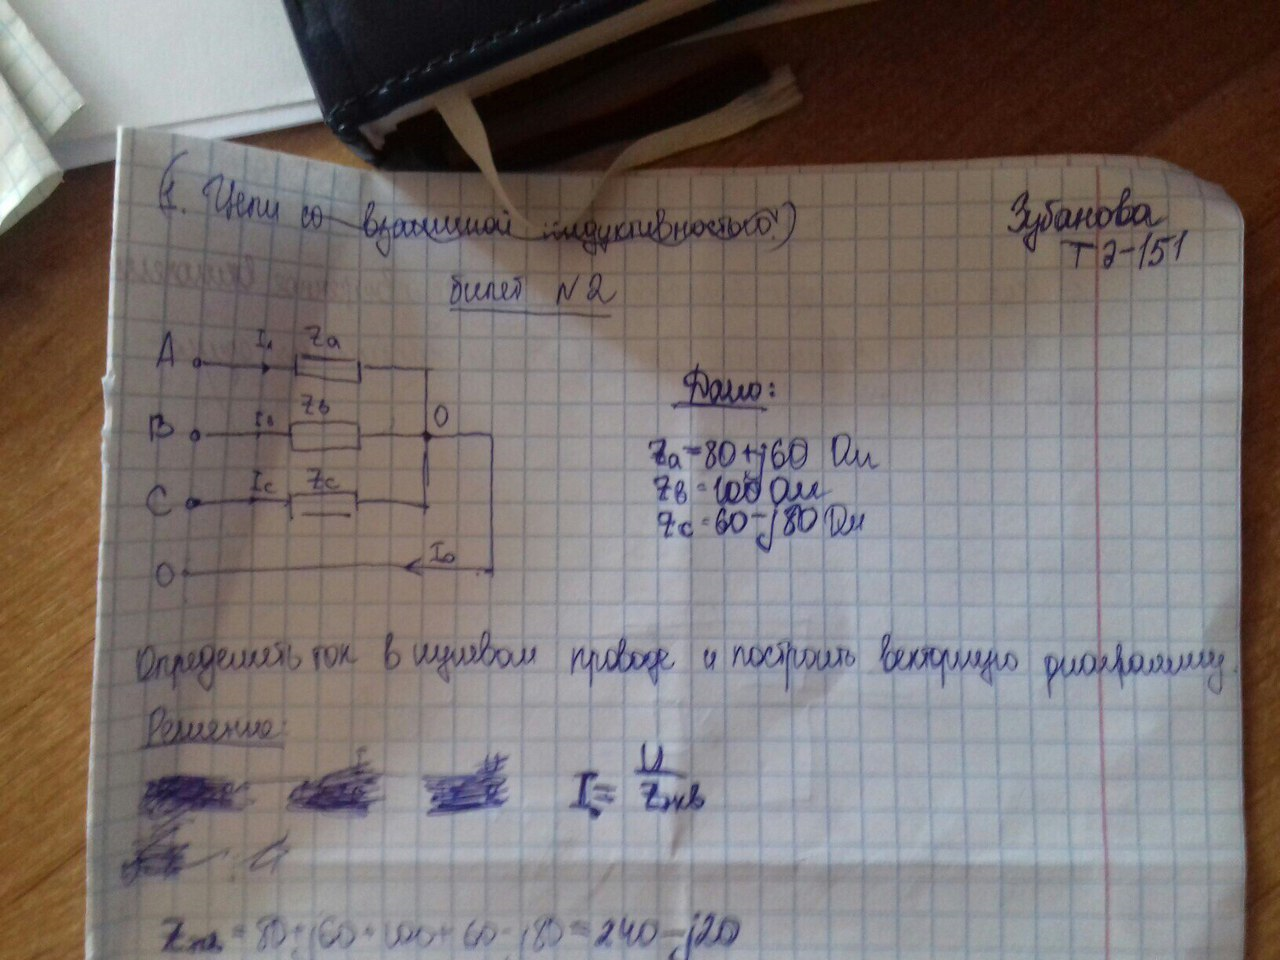 (1. Цепи со взаимной индуктивностью.)
Зубанова
ТЭ-151
билет №2
A Iа Za
B Iв Zв O
C Ic Zc
O Io
Дано:
Za=80+j60 Ом
Zв=100 Ом
Zc=60-j80 Ом
Определить ток в нулевом проводе и построить векторную диаграмму.
Решение:
I = U / Zэкв
Zэкв = 80+j60+100+60-j80=240-j20